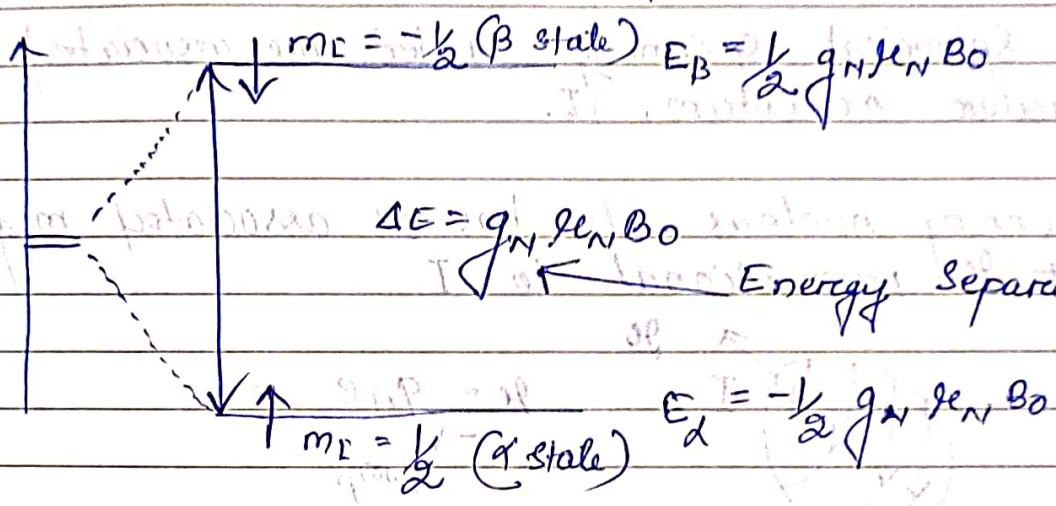 m_I = -1/2 (β state) E_β = 1/2 g_N μ_N B0
ΔE = g_N μ_N B0
Energy
m_I = 1/2 (α state) E_α = -1/2 g_N μ_N B0